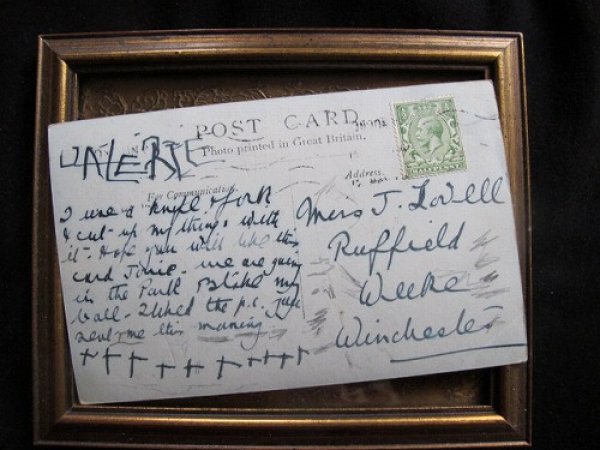 VALERIE
POST CARD
Photo printed in Great Britain.
For Communication
Address
I use a knife & fork
& cut up my things with
it - Hope you will like this
card Josie - we are going
in the Park & take my
ball - I liked the p.c. Jose
sent me this morning
Miss J. Lovell
Ruffield
Weeke
Winchester